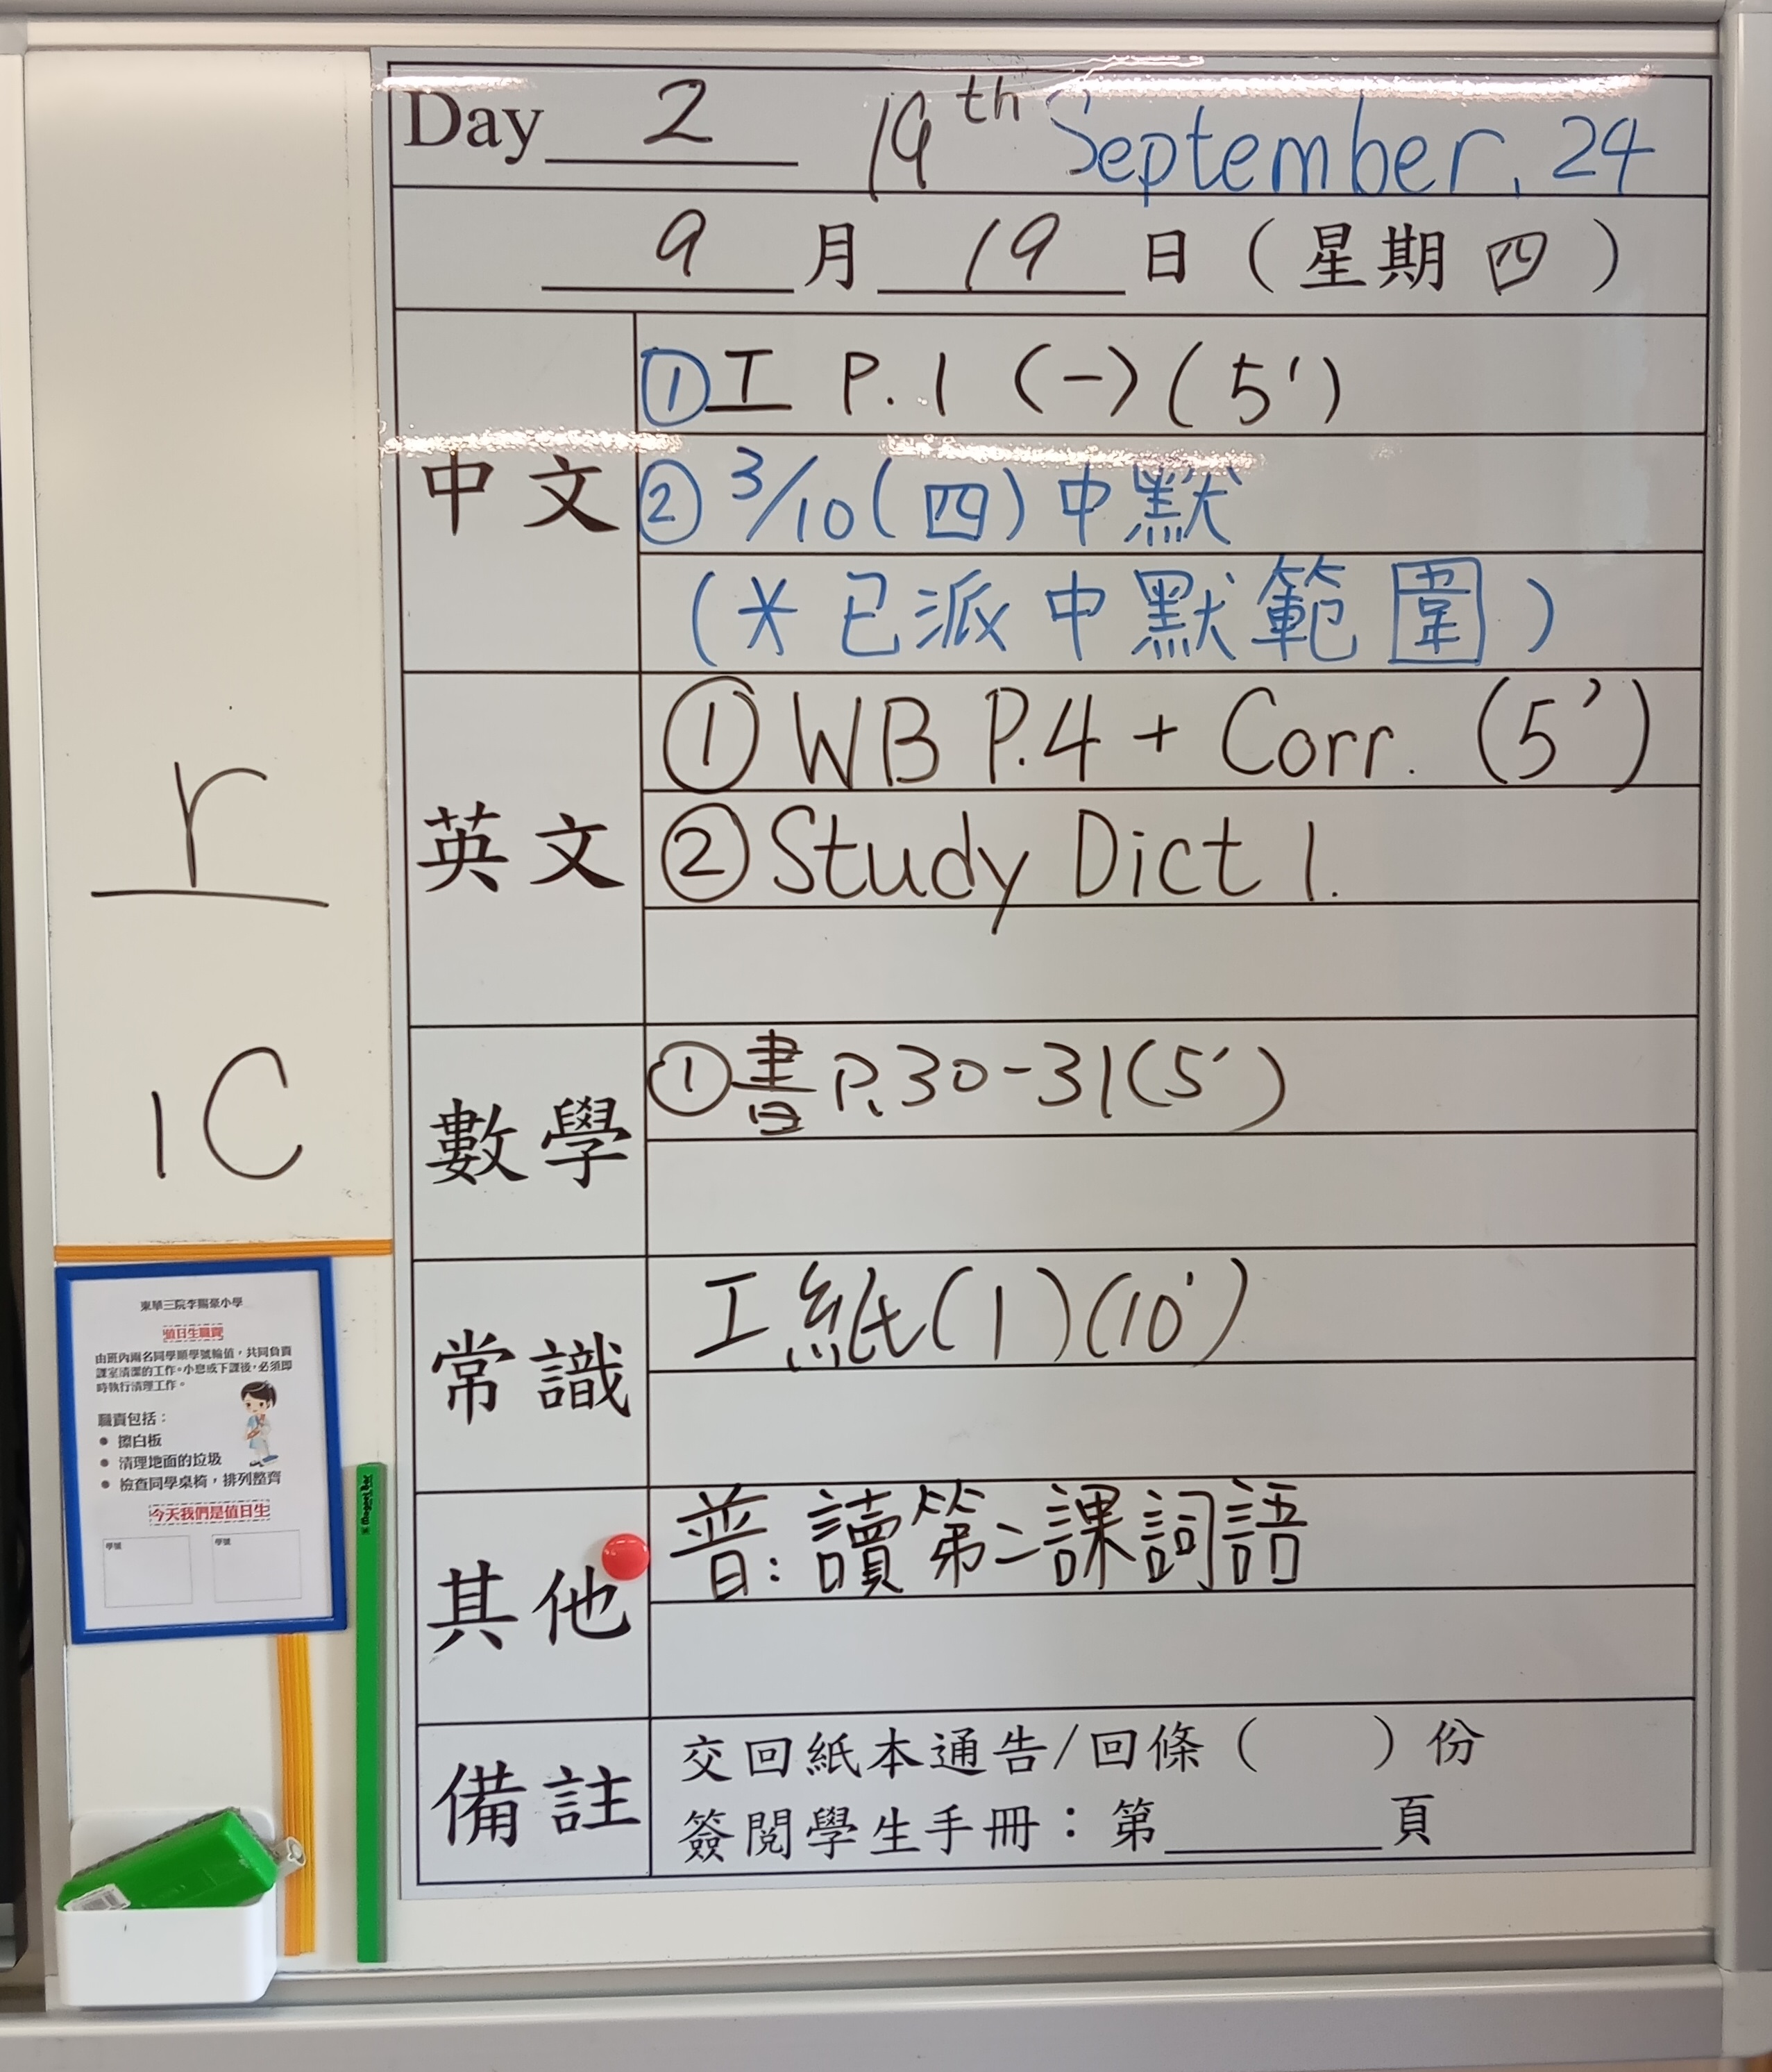 Day 2 19th September, 24
9月19日（星期四）
中文
①工 P.1 (一)(5')
②3/10(四)中默
(*已派中默範圍)
英文
①WB P.4 + Corr. (5')
②Study Dict 1.
數學
①書P.30-31(5')
常識
工紙(1)(10')
其他
普:讀第二課詞語
備註
交回紙本通告/回條（　　）份
簽閱學生手冊：第______頁
r
1C
東華三院李賜豪小學
值日生職責
由班內兩名同學順學號輪值，共同負責
課室清潔的工作。小息或下課後，必須即
時執行清理工作。
職責包括：
● 擦白板
● 清理地面的垃圾
● 檢查同學桌椅，排列整齊
今天我們是值日生
學號 學號
Magnet Bar